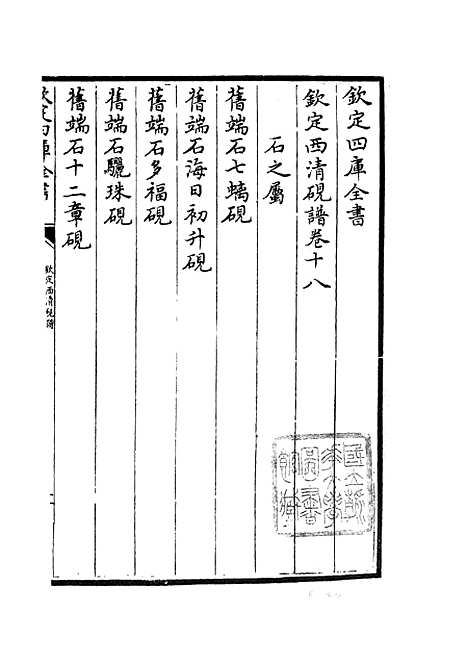 欽定四庫全書
欽定西清硯譜卷十八
石之屬
舊端石七螭硯
舊端石海日初升硯
舊端石多福硯
舊端石驪珠硯
舊端石十二章硯
欽定四庫全書
欽定西清硯譜
一